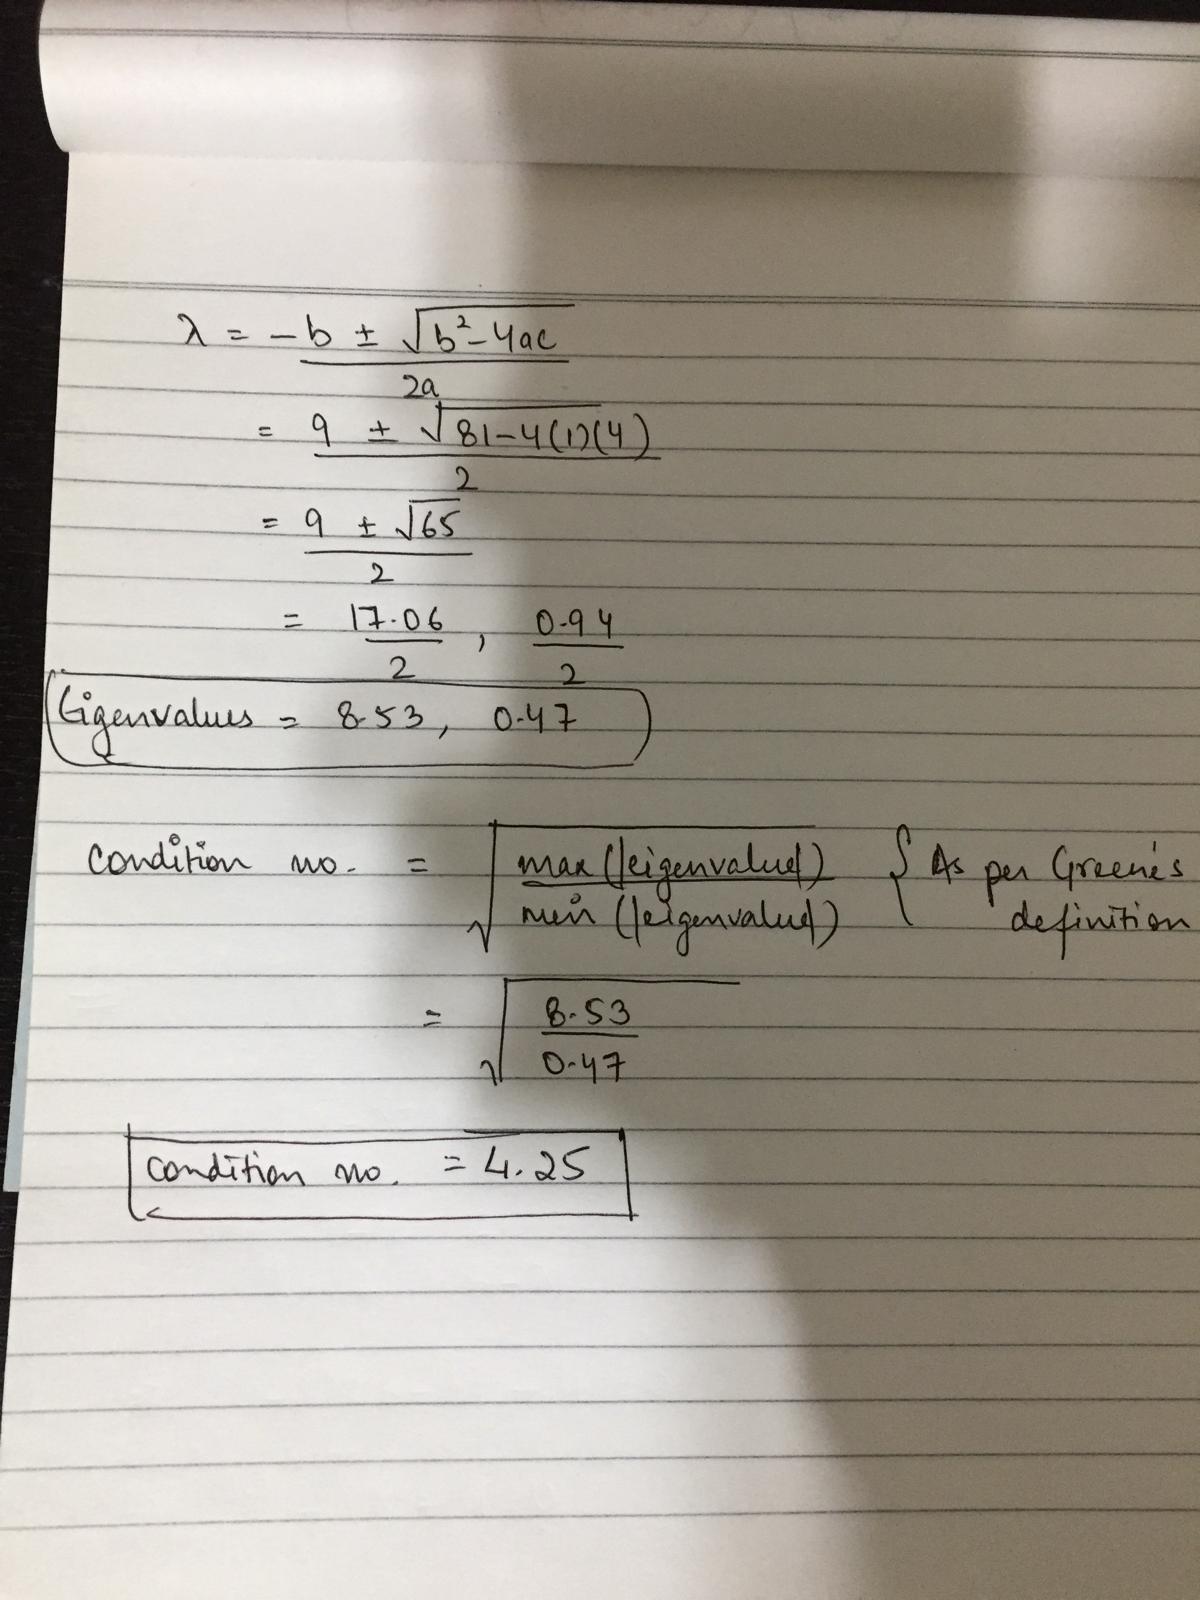 λ = -b ± √b²-4ac
2a
= 9 ± √81-4(1)(4)
2
= 9 ± √65
2
= 17.06 , 0.94
2 2
Eigenvalues = 8.53, 0.47
condition no. = √ max(|eigenvalue|) { As per Greene's
min(|eigenvalue|) definition
= √ 8.53
0.47
condition no. = 4.25